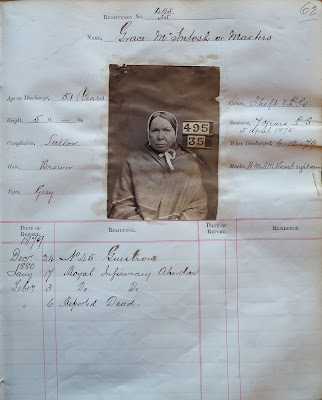 62
REGISTERED No. 495/35
Name, Grace McIntosh or Masters
Age on Discharge, 51 Years
Height, 5
Complexion, Sallow
Hair, Brown
Eyes, Grey
495
35
Crime, Theft
Sentence, 7 Years P.S.
5 April 1874
When Discharged, 6.12.79
Marks,
DATE OF REPORT. RESIDENCE. DATE OF REPORT. RESIDENCE.
1879
Decr. 24 No 45 Guestrow
1880
Jany 17 Royal Infirmary Aberdeen
Febry 3 Do Do
6 Reported Dead.